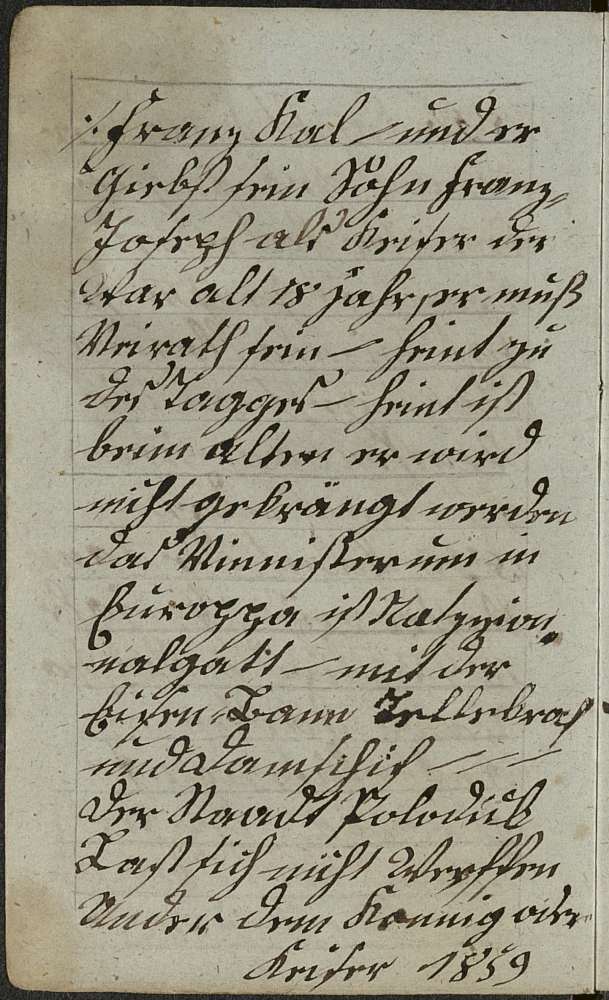 :/: Franz Kal – und er
Giebst sein Sohn Franz=
Joseph als Keiser der
war alt 18 Jahr, er muß
Veirath sein – heint zu
des Tagges – heint ist
beim alten er wird
nicht gekrängt werden
das Ministerum in
Europpa ist Natzion=
nalgatt – mit der
Eisen=Bann Tellebraf
und Damschif – – –
Der Staadt Polodiß
Last sich nicht Werffen
Under dem Konnig oder
Keiser 1859